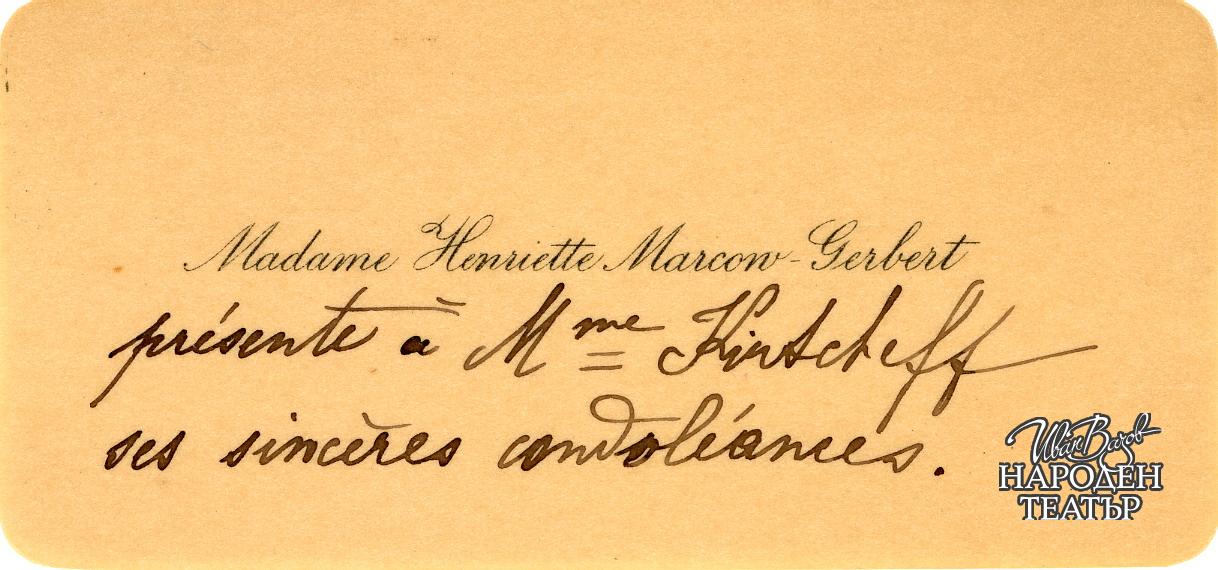 Madame Henriette Marcow-Gerbert
présente à Mme Kirtscheff
ses sincères condoléances.
Иван Вазов
НАРОДЕН
ТЕАТЪР